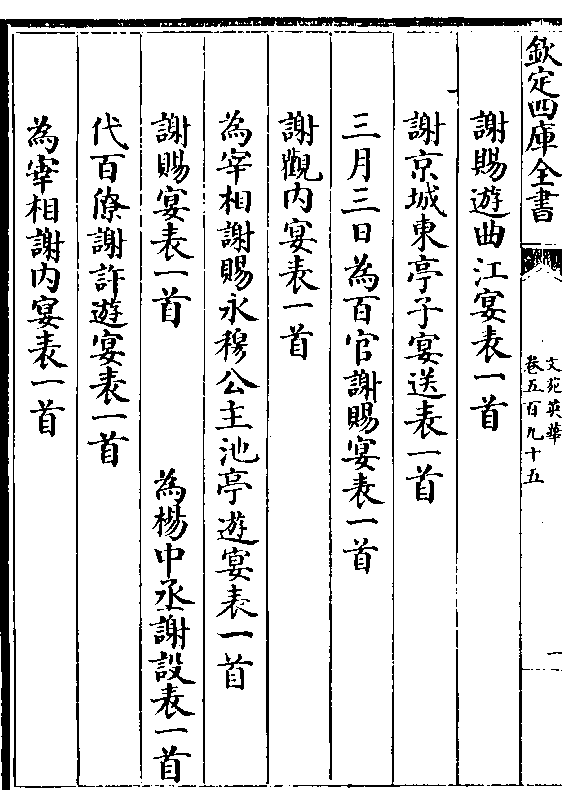 欽定四庫全書
文苑英華
卷五百九十五
一
謝賜遊曲江宴表一首
謝京城東亭子宴送表一首
三月三日為百官謝賜宴表一首
謝觀內宴表一首
為宰相謝賜永穆公主池亭遊宴表一首
謝賜宴表一首　為楊中丞謝設表一首
代百僚謝許遊宴表一首
為宰相謝內宴表一首